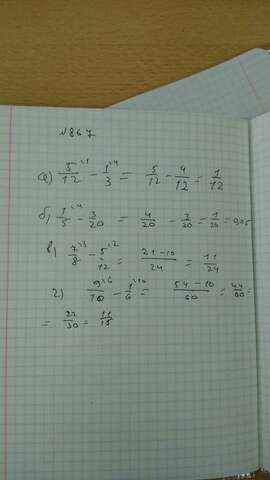 №867
а) 5/12 \1 - 1/3 \4 = 5/12 - 4/12 = 1/12
б) 1/5 \4 - 3/20 = 4/20 - 3/20 = 1/20 = 0,05
в) 7/8 \3 - 5/12 \2 = 21-10/24 = 11/24
г) 9/10 \6 - 1/6 \10 = 54-10/60 = 44/60 =
= 22/30 = 11/15